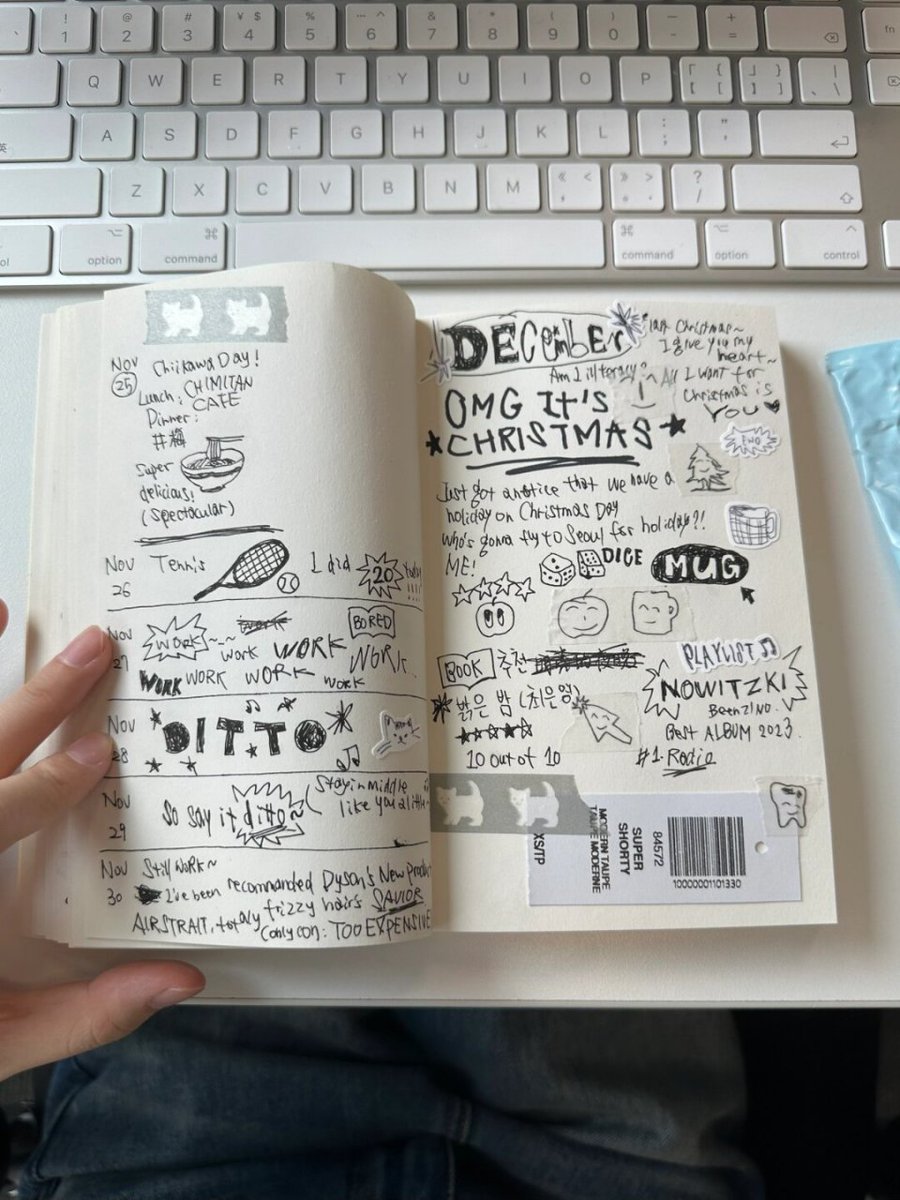 Nov
25
Chiikawa Day!
Lunch: CHIMITAN
CAFE
Dinner:
Super
delicious!
(Spectacular)
Nov
26
Tennis
I did
20
Nov
27
WORK~~
work
work
WORK
BORED
WORK
WORK WORK WORK
work
Nov
28
DITTO
Nov
29
So say it ditto~
Stay in middle
like you a little~
Nov
30
Still WORK~
I've been recommanded Dyson's New product
AIRSTRAIT, totaly frizzy hair's SAVIOR
Conly con: TOO EXPENSIVE
DECEmbEr
last Christmas~
I give you my
heart~
All I want for
Christmas is
YOU
Am I illiteracy?
OMG It'S
CHRISTMAS
Just got a notice that we have a
holiday on Christmas Day
Who's gonna fly to Seoul for holiday?!
ME!
DICE
MUG
BOOK 추천
밝은 밤 (최은영)
10 out of 10
PLAYLIST
NOWITZKI
BeenZINO.
Best ALBUM 2023.
#1. Radio
XS/TP
MODERN TAUPE
TAUPE MODERNE
SUPER
SHORTY
84572
10000001101330
~ 1 2 3 4 5 6 7 8 9 0
Q W E R T Y U I O P
A S D F G H J K L
Z X C V B N M
option
command
command
option
control
fn